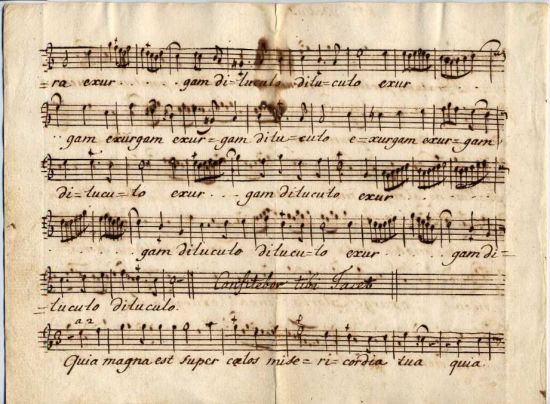 ra exur . . . gam di=luculo dilu=culo exur
. . gam exurgam exur=gam dilu=culo e=xurgam exur=gam
di=lucu=lo exur . . . gam diluculo exur
. . . . gam diluculo dilucu=lo exur . . gam di=
Confitebor tibi Tacet
=luculo diluculo.
a 2
Quia magna est super cælos mise=ri=cordia tua quia